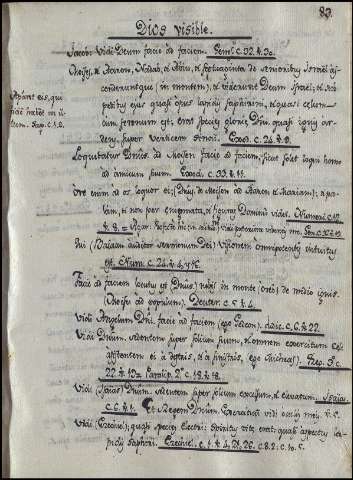 83.
Dios visible.
Jacob: Vidi Deum facie ad faciem. Genes. c. 32. v. 30.
Moises, et Aaron, Nadab, et Abiu, et septuaginta de senioribus Israel as-
cenderunt (in montem), et viderunt Deum Israel; et sub
pedibus ejus quasi opus lapidis saphirini, et quasi celum
cum serenum est, erat species gloriae Dni. quasi ignis ar-
dens, super verticem montis. Exod. c. 24. v. 9.
Aparet eis, qui
fidem habent in il-
lum. Sap. c. 1. 2.
Loquebatur Dnus. ad Moisen facie ad faciem, sicut solet loqui homo
ad amicum suum. Exod. c. 33. v. 11.
Ore enim ad os loquor ei; (Dnus. de Moisen ad Aaron et Mariam); et pa-
lam, et non per enigmata, et figuras Dominum videt. Numeror. c. 12.
v. 8.
Qui (Balaan auditor sermonum Dei) visionem omnipotentis intuitus
est. Num. c. 24. v. 4,
Facie ad faciem locutus est (Dnus.) nobis in monte de medio ignis.
(Moises ad populum). Deuter. c. 5. v. 4.
Vidi Angelum Dni. facie ad faciem (ego Gedeon). Judic. c. 6. v. 22.
Vidi Dnum. sedentem super solium suum, et omnem exercitum celi
assistentem ei a dextris, et a sinistris, ego (Micheas). Reg. 3. c.
22. v. 19. Paralip. 2. c. 18. v. 18.
Vidi (Isaias) Dnum. sedentem super solium excelsum, et elevatum. Isaias
c. 6. v. 1. Et Regem Dnum. exercituum vidi oculis meis. v. 5.
Vidi (Ezechiel); quasi species electri: similitudo erat quasi aspectus la-
pidis saphiri. Ezechiel. c. 1. v. 4, 26. c. 8. 2. c. 10. 1.